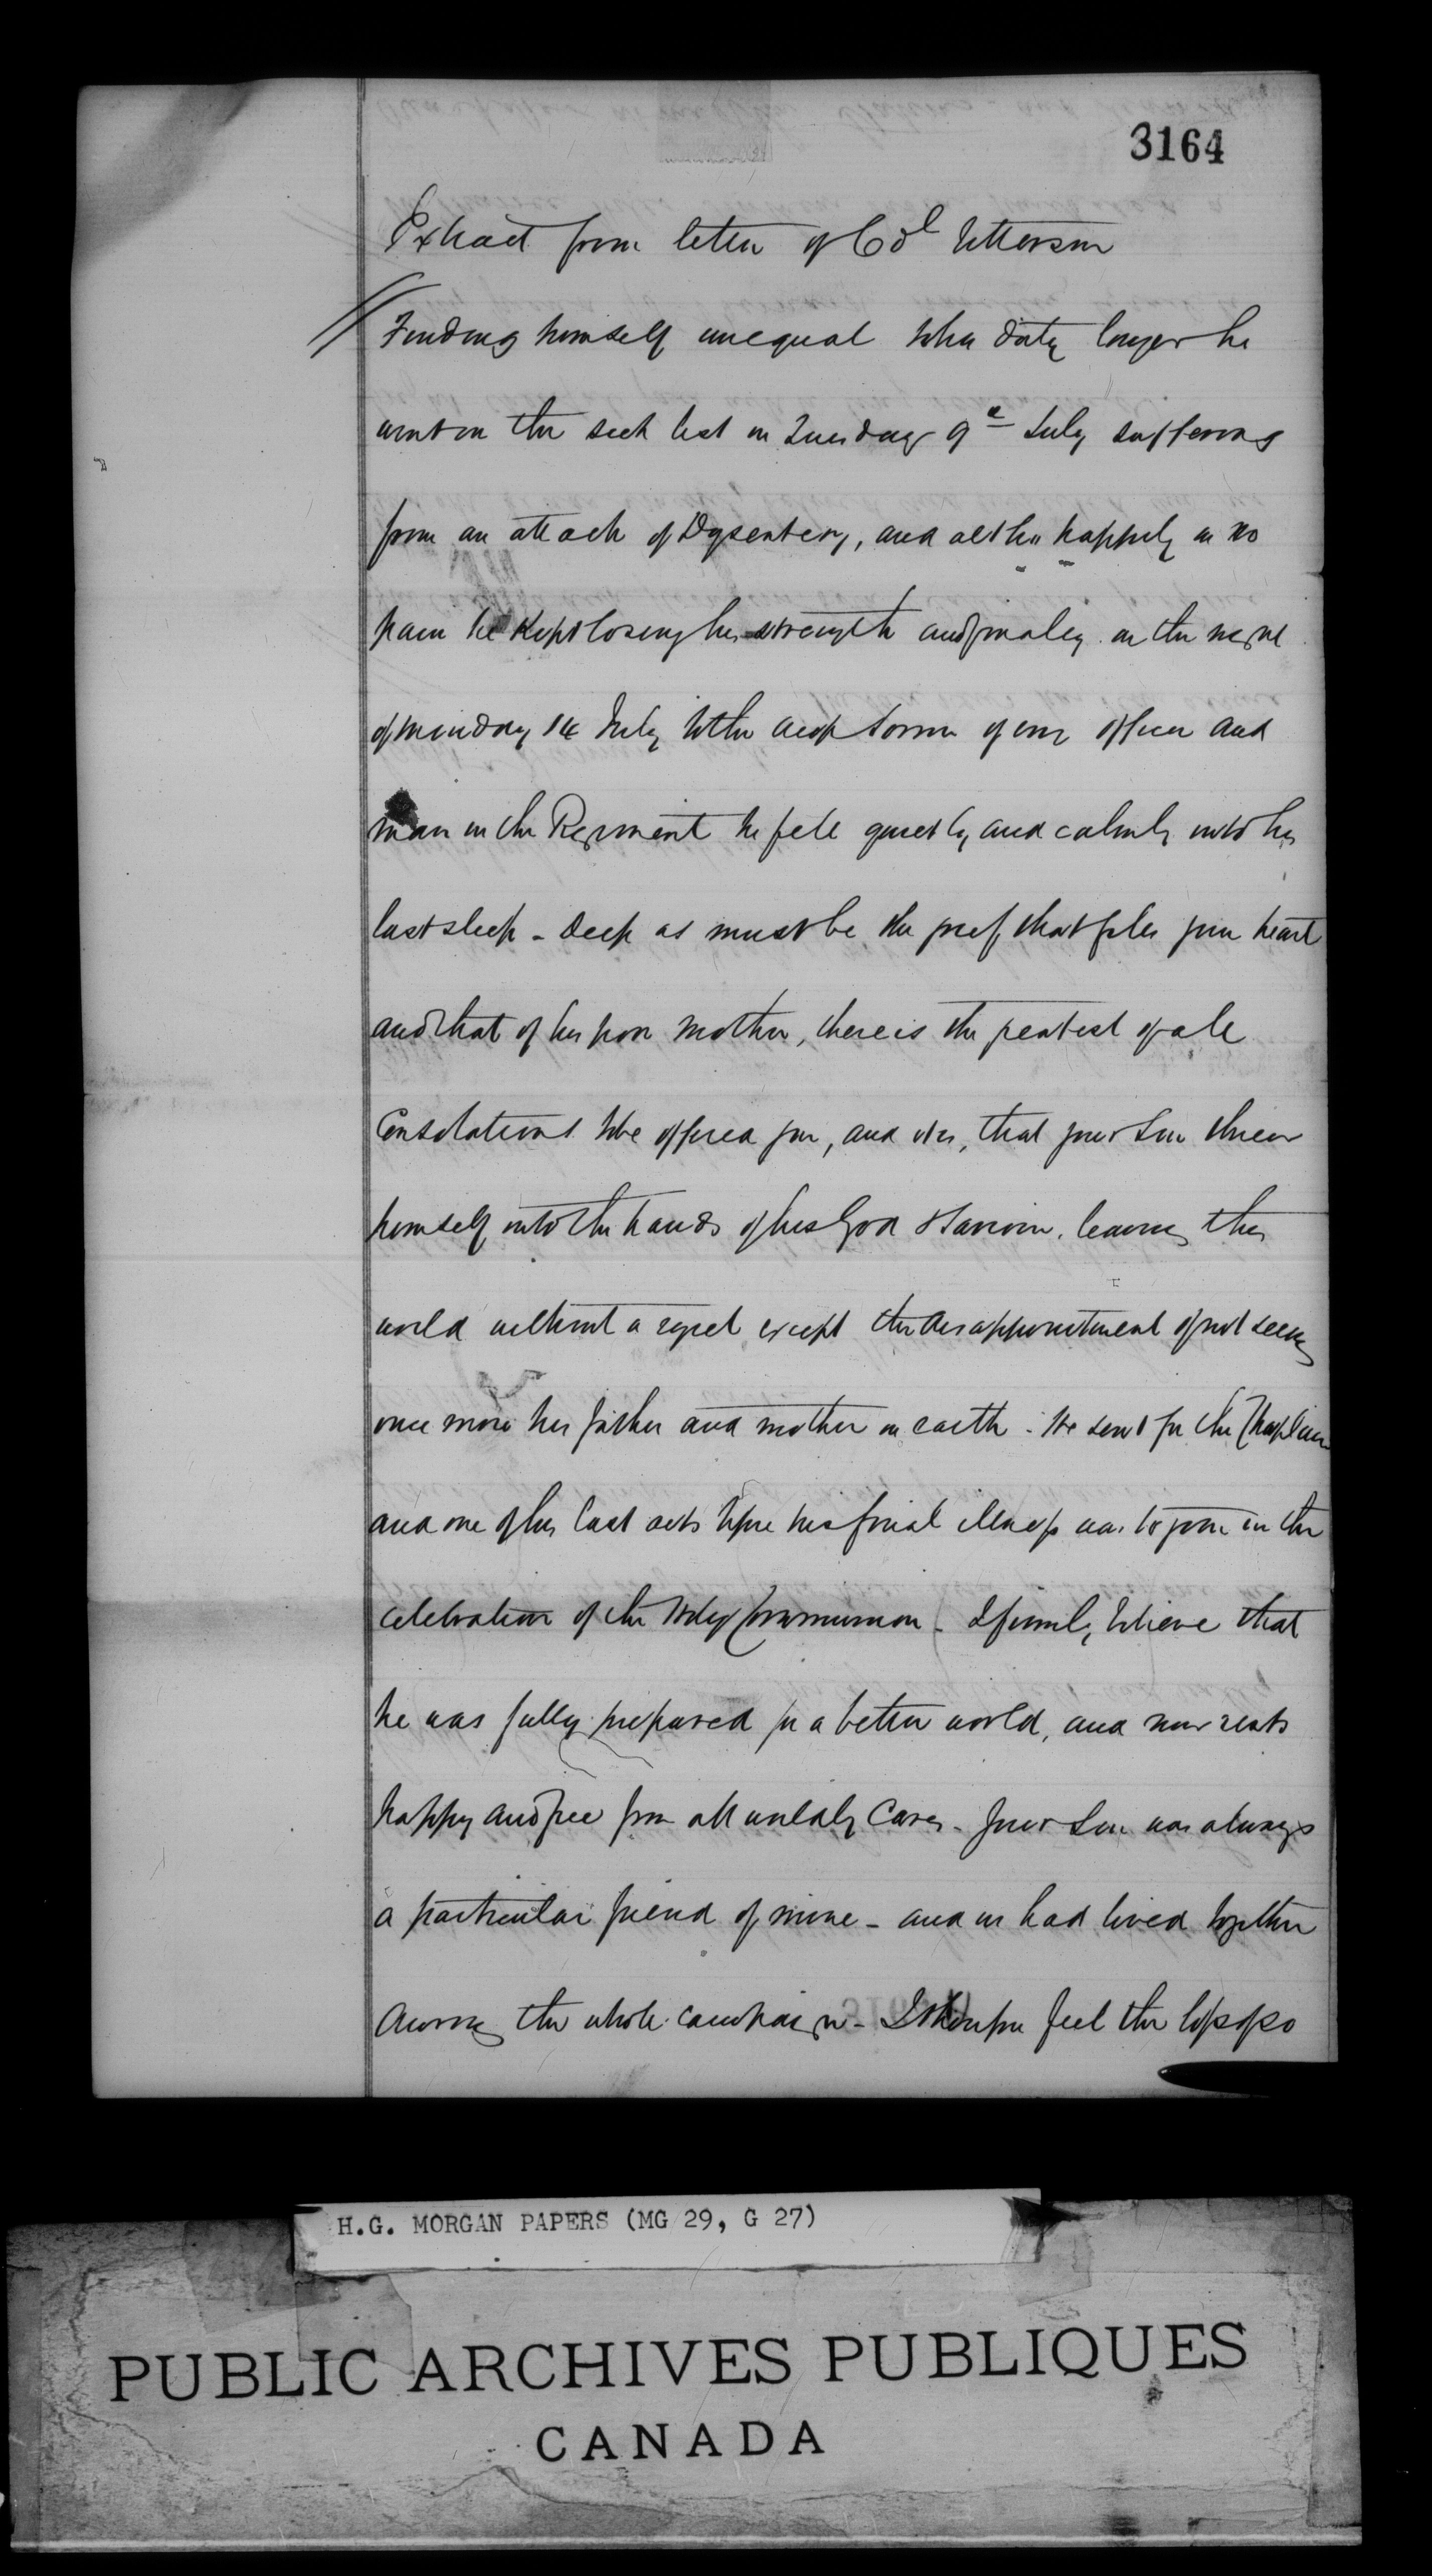 3164
Extract from letter of Col Utterson
Finding himself unequal to his duty longer he
went on the sick list on Tuesday 9th July suffering
from an attack of Dysentery, and altho' happily in no
pain he kept losing his strength and finally on the night
of Monday 14 July to the deep sorrow of every officer and
man in the Regiment he fell quietly and calmly into his
last sleep - Deep as must be the grief that fills your heart
and that of his poor mother, there is the greatest of all
Consolations to be offered you, and it is, that your Son threw
himself into the hands of his God & Saviour, leaving this
world without a regret except the disappointment of not seeing
once more his father and mother on earth - He sent for the Chaplain
and one of his last acts before his final illness was to join in the
celebration of the Holy Communion - I firmly believe that
he was fully prepared for a better world, and now rests
happy and free from all worldly Cares - Your Son was always
a particular friend of mine - and we had lived together
during the whole campaign - I therefore feel the loss of so
H.G. MORGAN PAPERS (MG 29, G 27)
PUBLIC ARCHIVES PUBLIQUES
CANADA